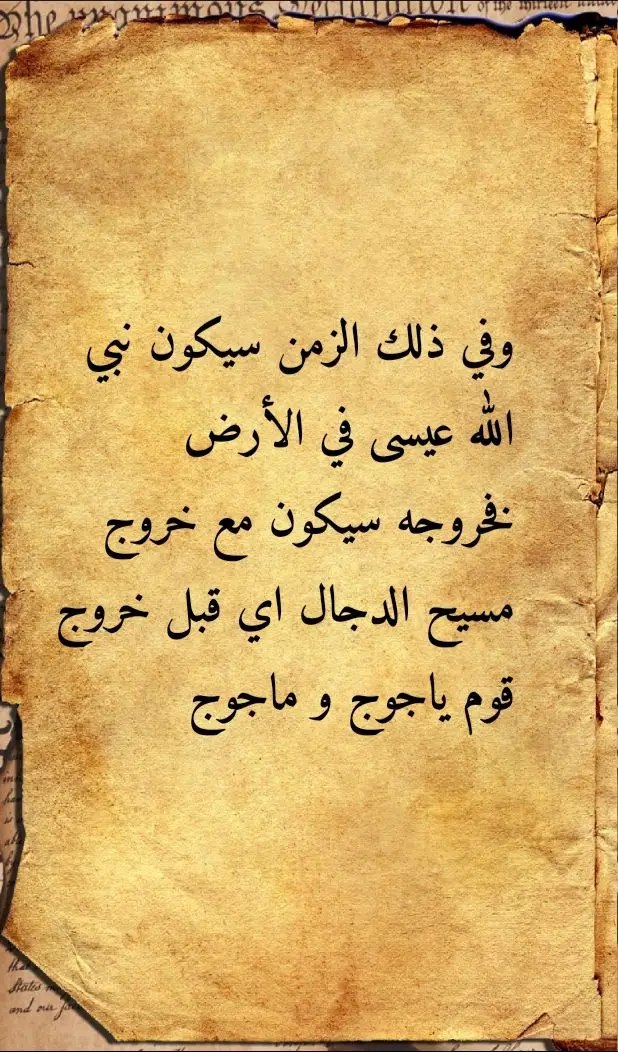 The unanimous Declaration of the thirteen united
وفي ذلك الزمن سيكون نبي
الله عيسى في الأرض
فخروجه سيكون مع خروج
مسيح الدجال اي قبل خروج
قوم ياجوج و ماجوج
that
States
and our